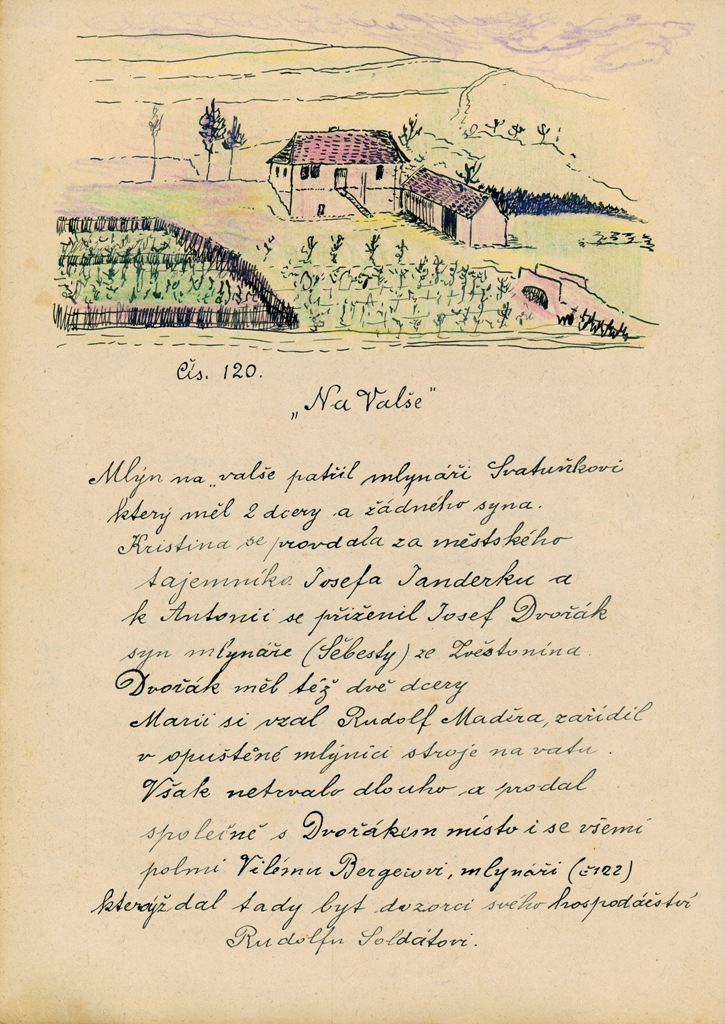 Čís. 120.
„Na Valše"
Mlýn na „valše patřil mlynáři Svatuňkovi
který měl 2 dcery a žádného syna.
Kristina se provdala za městského
tajemníka Josefa Janderku a
k Antonii se přiženil Josef Dvořák
syn mlynáře (Šebesty) ze Zvěstonína.
Dvořák měl též dvě dcery
Marii si vzal Rudolf Maděra, zařídil
v opuštěné mlýnici stroje na vatu.
Však netrvalo dlouho a prodal
společně s Dvořákem místo i se všemi
polmi Vilému Bergerovi, mlynáři (č122)
kterýž dal tady byt dozorci svého hospodářství
Rudolfu Soldátovi.